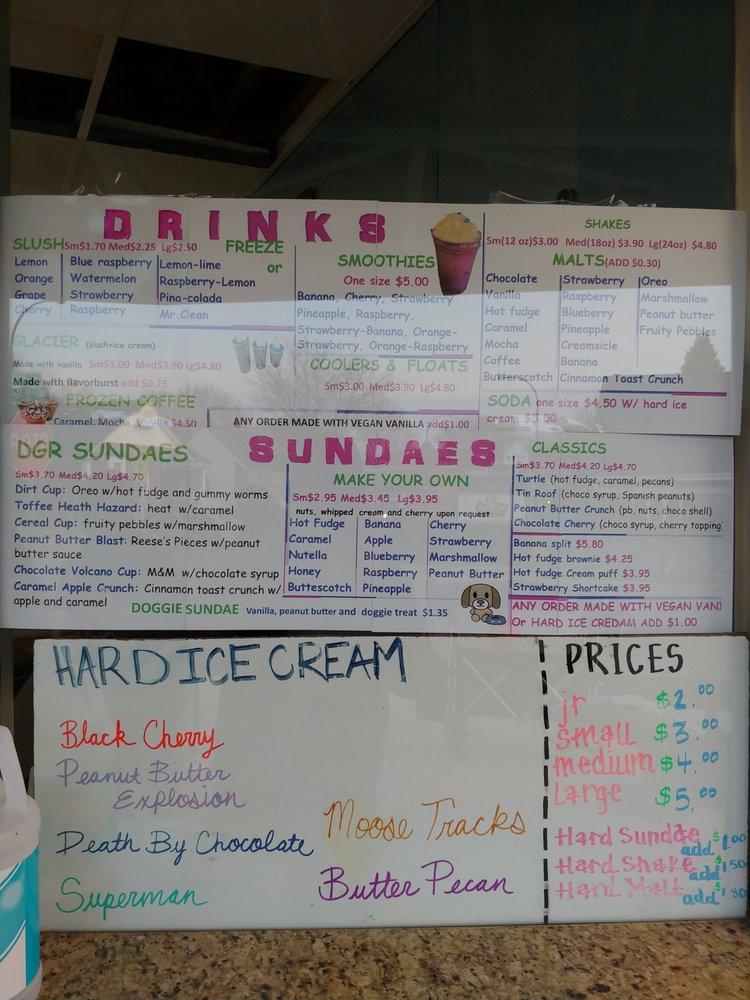 DRINKS
SLUSH Sm$1.70 Med$2.25 Lg$2.50
Lemon
Orange
Grape
Cherry
Blue raspberry
Watermelon
Strawberry
Raspberry
FREEZE
or
Lemon-lime
Raspberry-Lemon
Pina-colada
Mr.Clean
GLACIER (slush+ice cream)
Made with vanilla Sm$3.00 Med$3.90 Lg$4.80
Made with flavorburst add $0.75
FROZEN COFFEE
Caramel, Mocha, Vanilla $4.50
SMOOTHIES
One size $5.00
Banana, Cherry, Strawberry
Pineapple, Raspberry,
Strawberry-Banana, Orange-
Strawberry, Orange-Raspberry
COOLERS & FLOATS
Sm$3.00 Med$3.90 Lg$4.80
ANY ORDER MADE WITH VEGAN VANILLA add$1.00
SHAKES
Sm(12 oz)$3.00 Med(18oz) $3.90 Lg(24oz) $4.80
MALTS(ADD $0.30)
Chocolate
Vanilla
Hot fudge
Caramel
Mocha
Coffee
Butterscotch
Strawberry
Raspberry
Blueberry
Pineapple
Creamsicle
Banana
Cinnamon Toast Crunch
Oreo
Marshmallow
Peanut butter
Fruity Pebbles
SODA one size $4.50 W/ hard ice
cream $5.50
SUNDAES
DGR SUNDAES
Sm$3.70 Med$4.20 Lg$4.70
Dirt Cup: Oreo w/hot fudge and gummy worms
Toffee Heath Hazard: heat w/caramel
Cereal Cup: fruity pebbles w/marshmallow
Peanut Butter Blast: Reese's Pieces w/peanut
butter sauce
Chocolate Volcano Cup: M&M w/chocolate syrup
Caramel Apple Crunch: Cinnamon toast crunch w/
apple and caramel
MAKE YOUR OWN
Sm$2.95 Med$3.45 Lg$3.95
nuts, whipped cream and cherry upon request
Hot Fudge
Caramel
Nutella
Honey
Buttescotch
Banana
Apple
Blueberry
Raspberry
Pineapple
Cherry
Strawberry
Marshmallow
Peanut Butter
DOGGIE SUNDAE Vanilla, peanut butter and doggie treat $1.35
CLASSICS
Sm$3.70 Med$4.20 Lg$4.70
Turtle (hot fudge, caramel, pecans)
Tin Roof (choco syrup, Spanish peanuts)
Peanut Butter Crunch (pb, nuts, choco shell)
Chocolate Cherry (choco syrup, cherry topping)
Banana split $5.80
Hot fudge brownie $4.25
Hot fudge Cream puff $3.95
Strawberry Shortcake $3.95
ANY ORDER MADE WITH VEGAN VANI
Or HARD ICE CREDAM ADD $1.00
HARD ICE CREAM
Black Cherry
Peanut Butter
Explosion
Death By Chocolate
Superman
Moose Tracks
Butter Pecan
PRICES
jr $2.00
small $3.00
medium $4.00
Large $5.00
Hard Sundae add $1.00
Hard Shake add $1.50
Hard Malt add $1.80